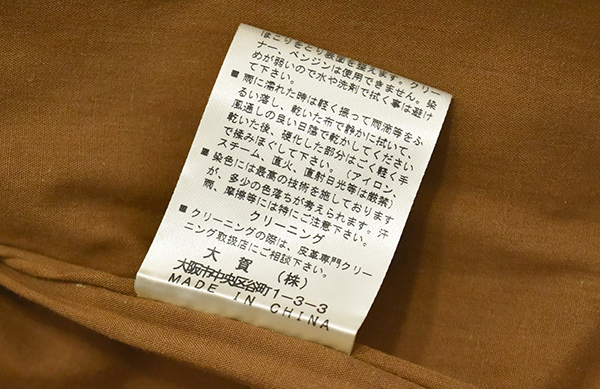 ほこりをとり表面を整えます。クリー
ナー、ベンジンは使用できません。染
めが弱いので水や洗剤で拭く事は避け
て下さい。
■ 雨に濡れた時は軽く振って雨滴等をふ
るい落し、乾いた布で静かに拭いて、
風通しの良い日陰で乾かしてください
乾いた後、硬化した部分はごく軽く手
で揉みほぐして下さい。(アイロン
スチーム、直火、直射日光等は厳禁)
■ 染色には最高の技術を施しております
が、多少の色落ちが考えられます。汗
雨、摩擦等には特にご注意下さい。
クリーニング
■ クリーニングの際は、皮革専門クリー
ニング取扱店にご相談下さい。
大賀(株)
大阪市中央区谷町1-3-3
MADE IN CHINA